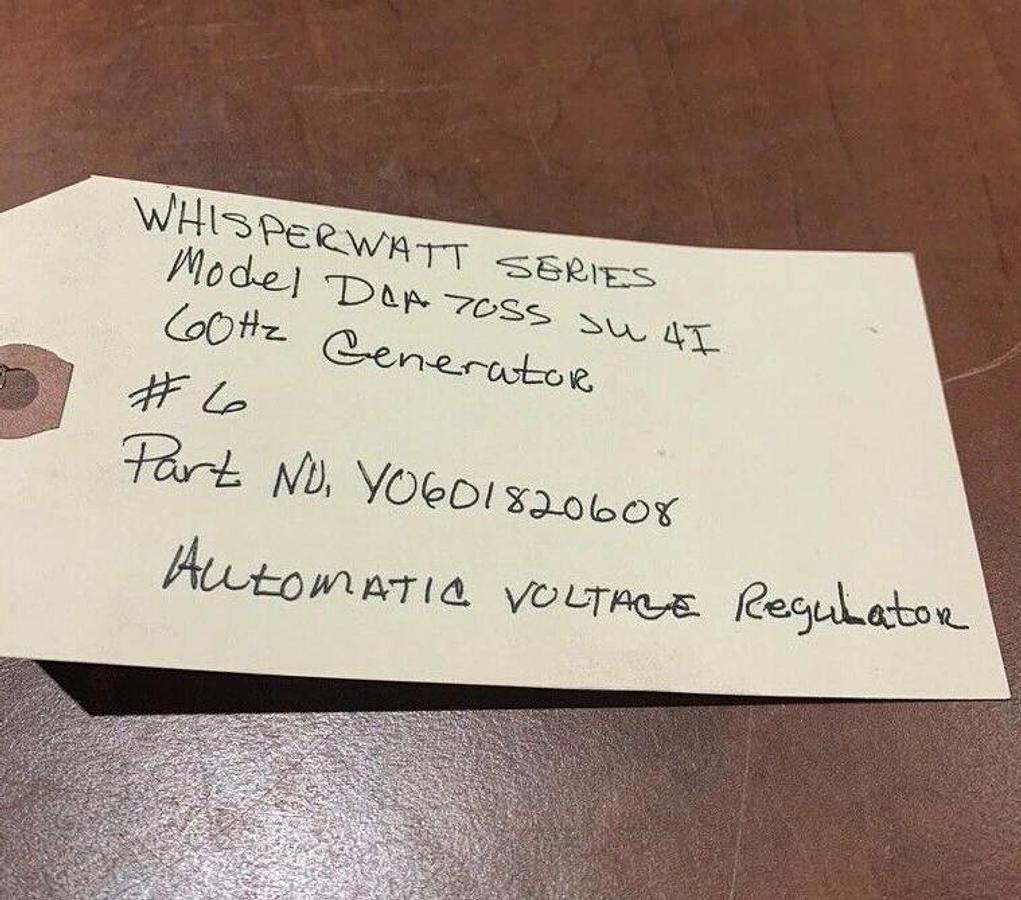 WHISPERWATT SERIES
Model DCA 70SS JU 4I
60Hz Generator
# 6
Part No. Y0601820608
Automatic VOLTAGE Regulator